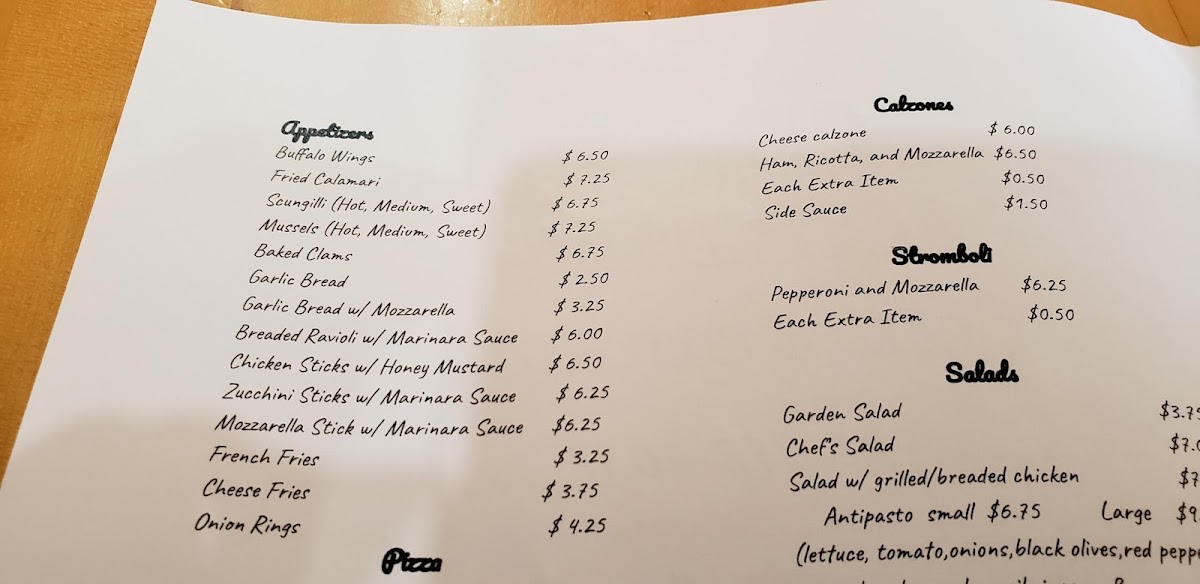 Appetizers
Buffalo Wings $ 6.50
Fried Calamari $ 7.25
Scungilli (Hot, Medium, Sweet) $ 6.75
Mussels (Hot, Medium, Sweet) $ 7.25
Baked Clams $ 6.75
Garlic Bread $ 2.50
Garlic Bread w/ Mozzarella $ 3.25
Breaded Ravioli w/ Marinara Sauce $ 6.00
Chicken Sticks w/ Honey Mustard $ 6.50
Zucchini Sticks w/ Marinara Sauce $ 6.25
Mozzarella Stick w/ Marinara Sauce $6.25
French Fries $ 3.25
Cheese Fries $ 3.75
Onion Rings $ 4.25
Pizza
Calzones
Cheese calzone $ 6.00
Ham, Ricotta, and Mozzarella $6.50
Each Extra Item $0.50
Side Sauce $1.50
Stromboli
Pepperoni and Mozzarella $6.25
Each Extra Item $0.50
Salads
Garden Salad $3.75
Chef's Salad
Salad w/ grilled/breaded chicken
Antipasto small $6.75 Large
(lettuce, tomato,onions,black olives,red